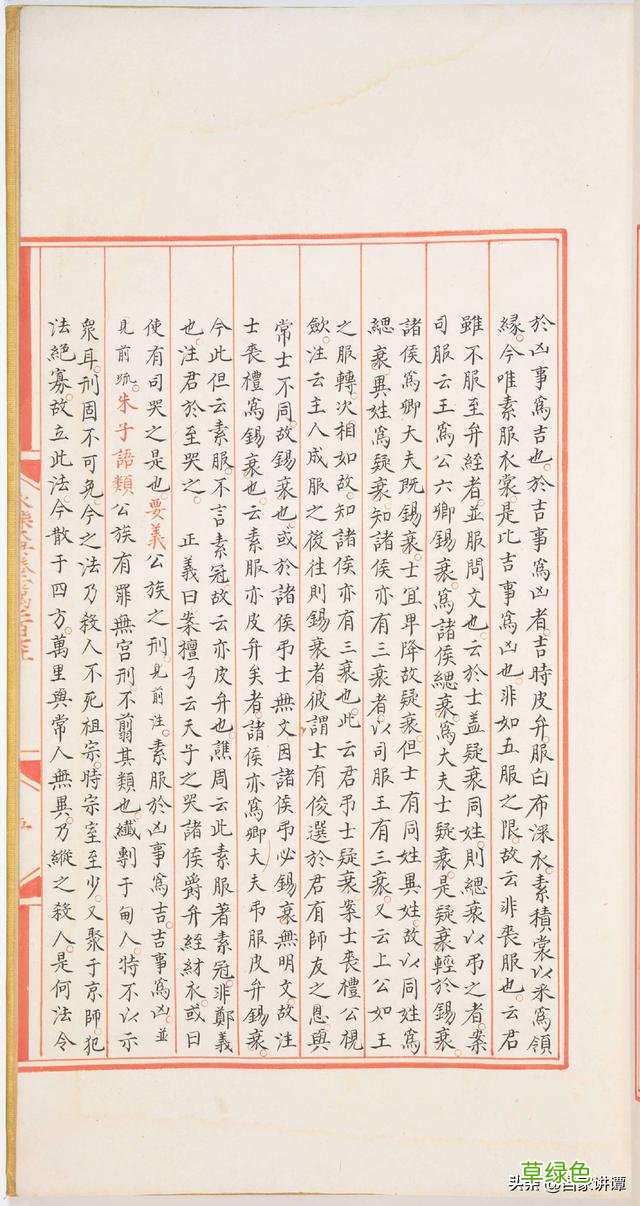 於凶事爲吉也。於吉事爲凶者。吉時皮弁。服白布深衣。素積裳。以采爲領
緣。今唯素服衣裳。是比吉事爲凶也。非如五服之限。故云非喪服也。云君
雖不服至弁絰者。並服問文也。云於士蓋疑衰。同姓。則緦衰以弔之者。案
司服云。王爲公六卿錫衰。爲諸侯緦衰。爲大夫士疑衰。是疑衰輕於錫衰。
諸侯爲卿大夫既錫衰。士宜卑降。故疑衰。但士有同姓異姓。故以同姓爲
緦衰。異姓爲疑衰。知諸侯亦有三衰者。以司服王有三衰。又云上公如王
之服。轉次相如。故知諸侯亦有三衰也。此云君弔士疑衰。案士喪禮公視
歛。注云。主人成服之後往則錫衰者。彼謂士有俊選。於君有師友之恩。與
常士不同。故錫衰也。或於諸侯弔士無文。因諸侯弔必錫衰。無明文。故注
士喪禮爲錫衰也。云素服亦皮弁矣者。諸侯亦爲卿大夫弔服皮弁錫衰。
今此但云素服。不言素冠。故云亦皮弁也。譙周云。此素服著素冠。非鄭義
也。注君於至哭之。 正義曰。案檀弓云。天子之哭諸侯。爵弁絰紂衣。或曰
使有司哭之。是也。要義公族之刑。見前注。素服於凶事爲吉。吉事爲凶。並
見前疏。朱子語類公族有罪無宮刑。不翦其類也。纖剸于甸人。特不以示
衆耳。刑固不可免。今之法。乃殺人不死。祖宗時宗室至少。又聚于京師。犯
法絕寡。故立此法。今散于四方。萬里與常人無異。乃縱之殺人。是何法令
永樂大典卷
草绿色
头条 @百家讲谭